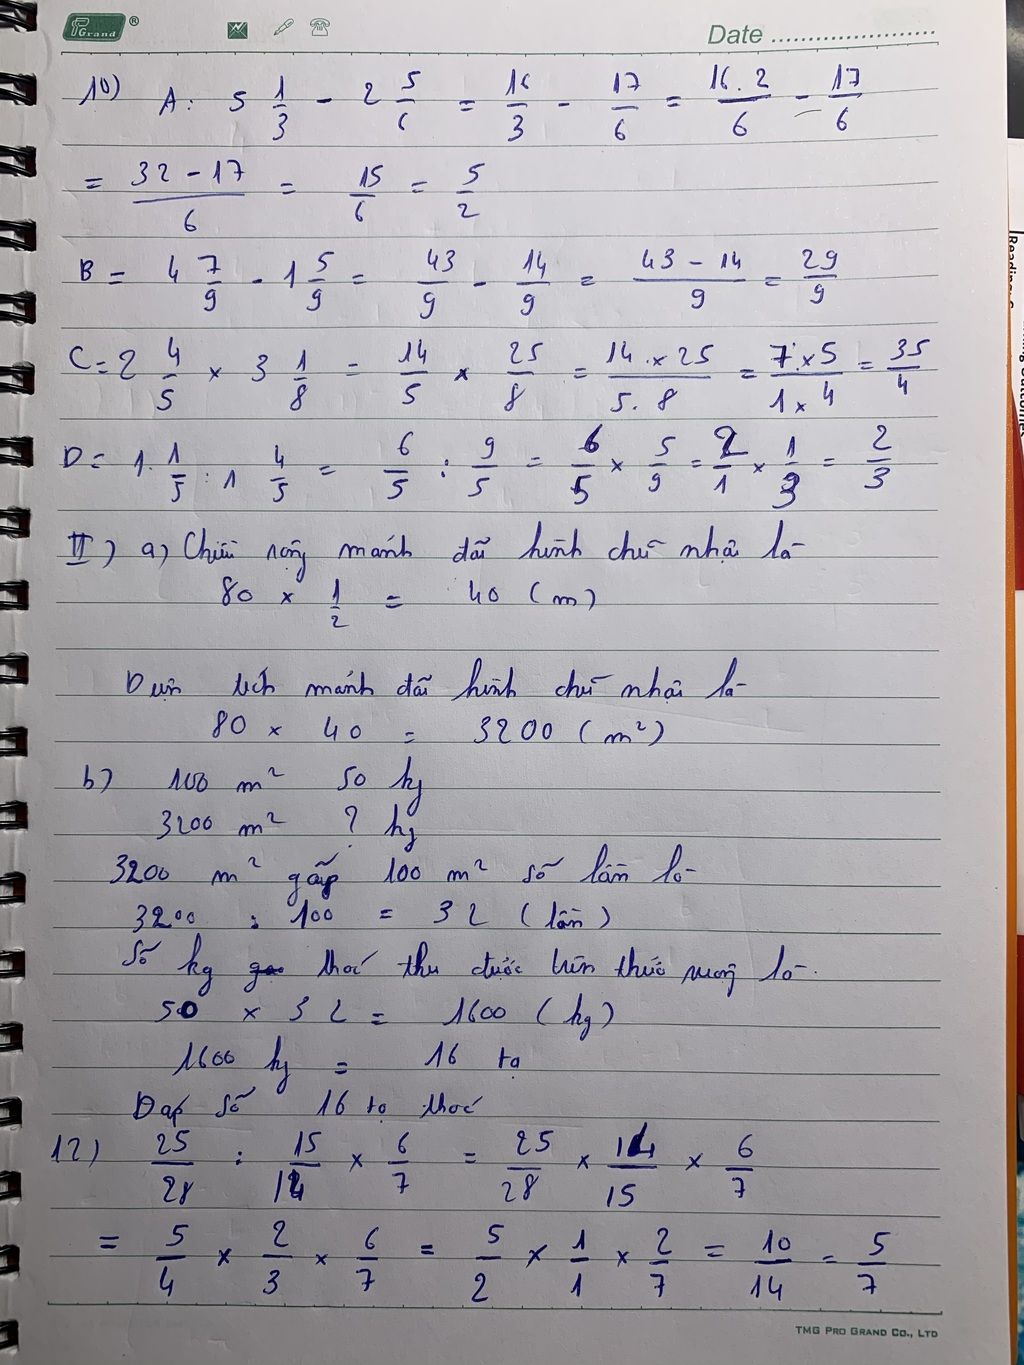 PGrand ® Date ........................
10) A: 5 1/3 - 2 5/6 = 16/3 - 17/6 = 16.2/6 - 17/6
= 32 - 17/6 = 15/6 = 5/2
B = 4 7/9 - 1 5/9 = 43/9 - 14/9 = 43 - 14/9 = 29/9
C = 2 4/5 × 3 1/8 = 14/5 × 25/8 = 14 × 25/5.8 = 7 × 5/1 × 4 = 35/4
D = 1 1/5 : 1 4/5 = 6/5 : 9/5 = 6/5 × 5/9 = 2/1 × 1/3 = 2/3
II) a) Chiều rộng mảnh đất hình chữ nhật là
80 × 1/2 = 40 (m)
Diện tích mảnh đất hình chữ nhật là
80 × 40 = 3200 (m²)
b) 100 m² 50 kg
3200 m² ? kg
3200 m² gấp 100 m² số lần là
3200 : 100 = 32 (lần)
Số kg thóc thu được trên thửa ruộng là.
50 × 32 = 1600 (kg)
1600 kg = 16 tạ
Đáp số 16 tạ thóc
12) 25/28 : 15/14 × 6/7 = 25/28 × 14/15 × 6/7
= 5/4 × 2/3 × 6/7 = 5/2 × 1/1 × 2/7 = 10/14 = 5/7
TMG PRO GRAND CO., LTD